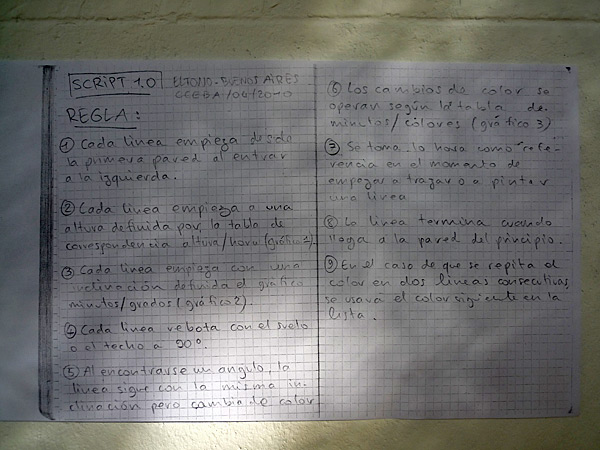 SCRIPT 1.0
ELTONO. BUENOS AIRES
CCEBA/04/2010
REGLA:
① Cada linea empieza desde
la primera pared al entrar
a la izquierda.
② Cada linea empieza a una
altura definida por la tabla de
correspondencia altura/hora (gráfico 1).
③ Cada linea empieza con una
inclinación definida el gráfico
minutos/grados (gráfico 2).
④ Cada linea rebota con el suelo
o el techo a 90°.
⑤ Al encontrarse un angulo, la
linea sigue con la misma in-
clinación pero cambia de color
⑥ Los cambios de color se
operan según la tabla de
minutos/colores (gráfico 3)
⑦ Se toma la hora como refe-
rencia en el momento de
empezar a trazar o a pintar
una linea
⑧ La linea termina cuando
llega a la pared del principio.
⑨ En el caso de que se repita el
color en dos lineas consecutivas
se usará el color siguiente en la
lista.